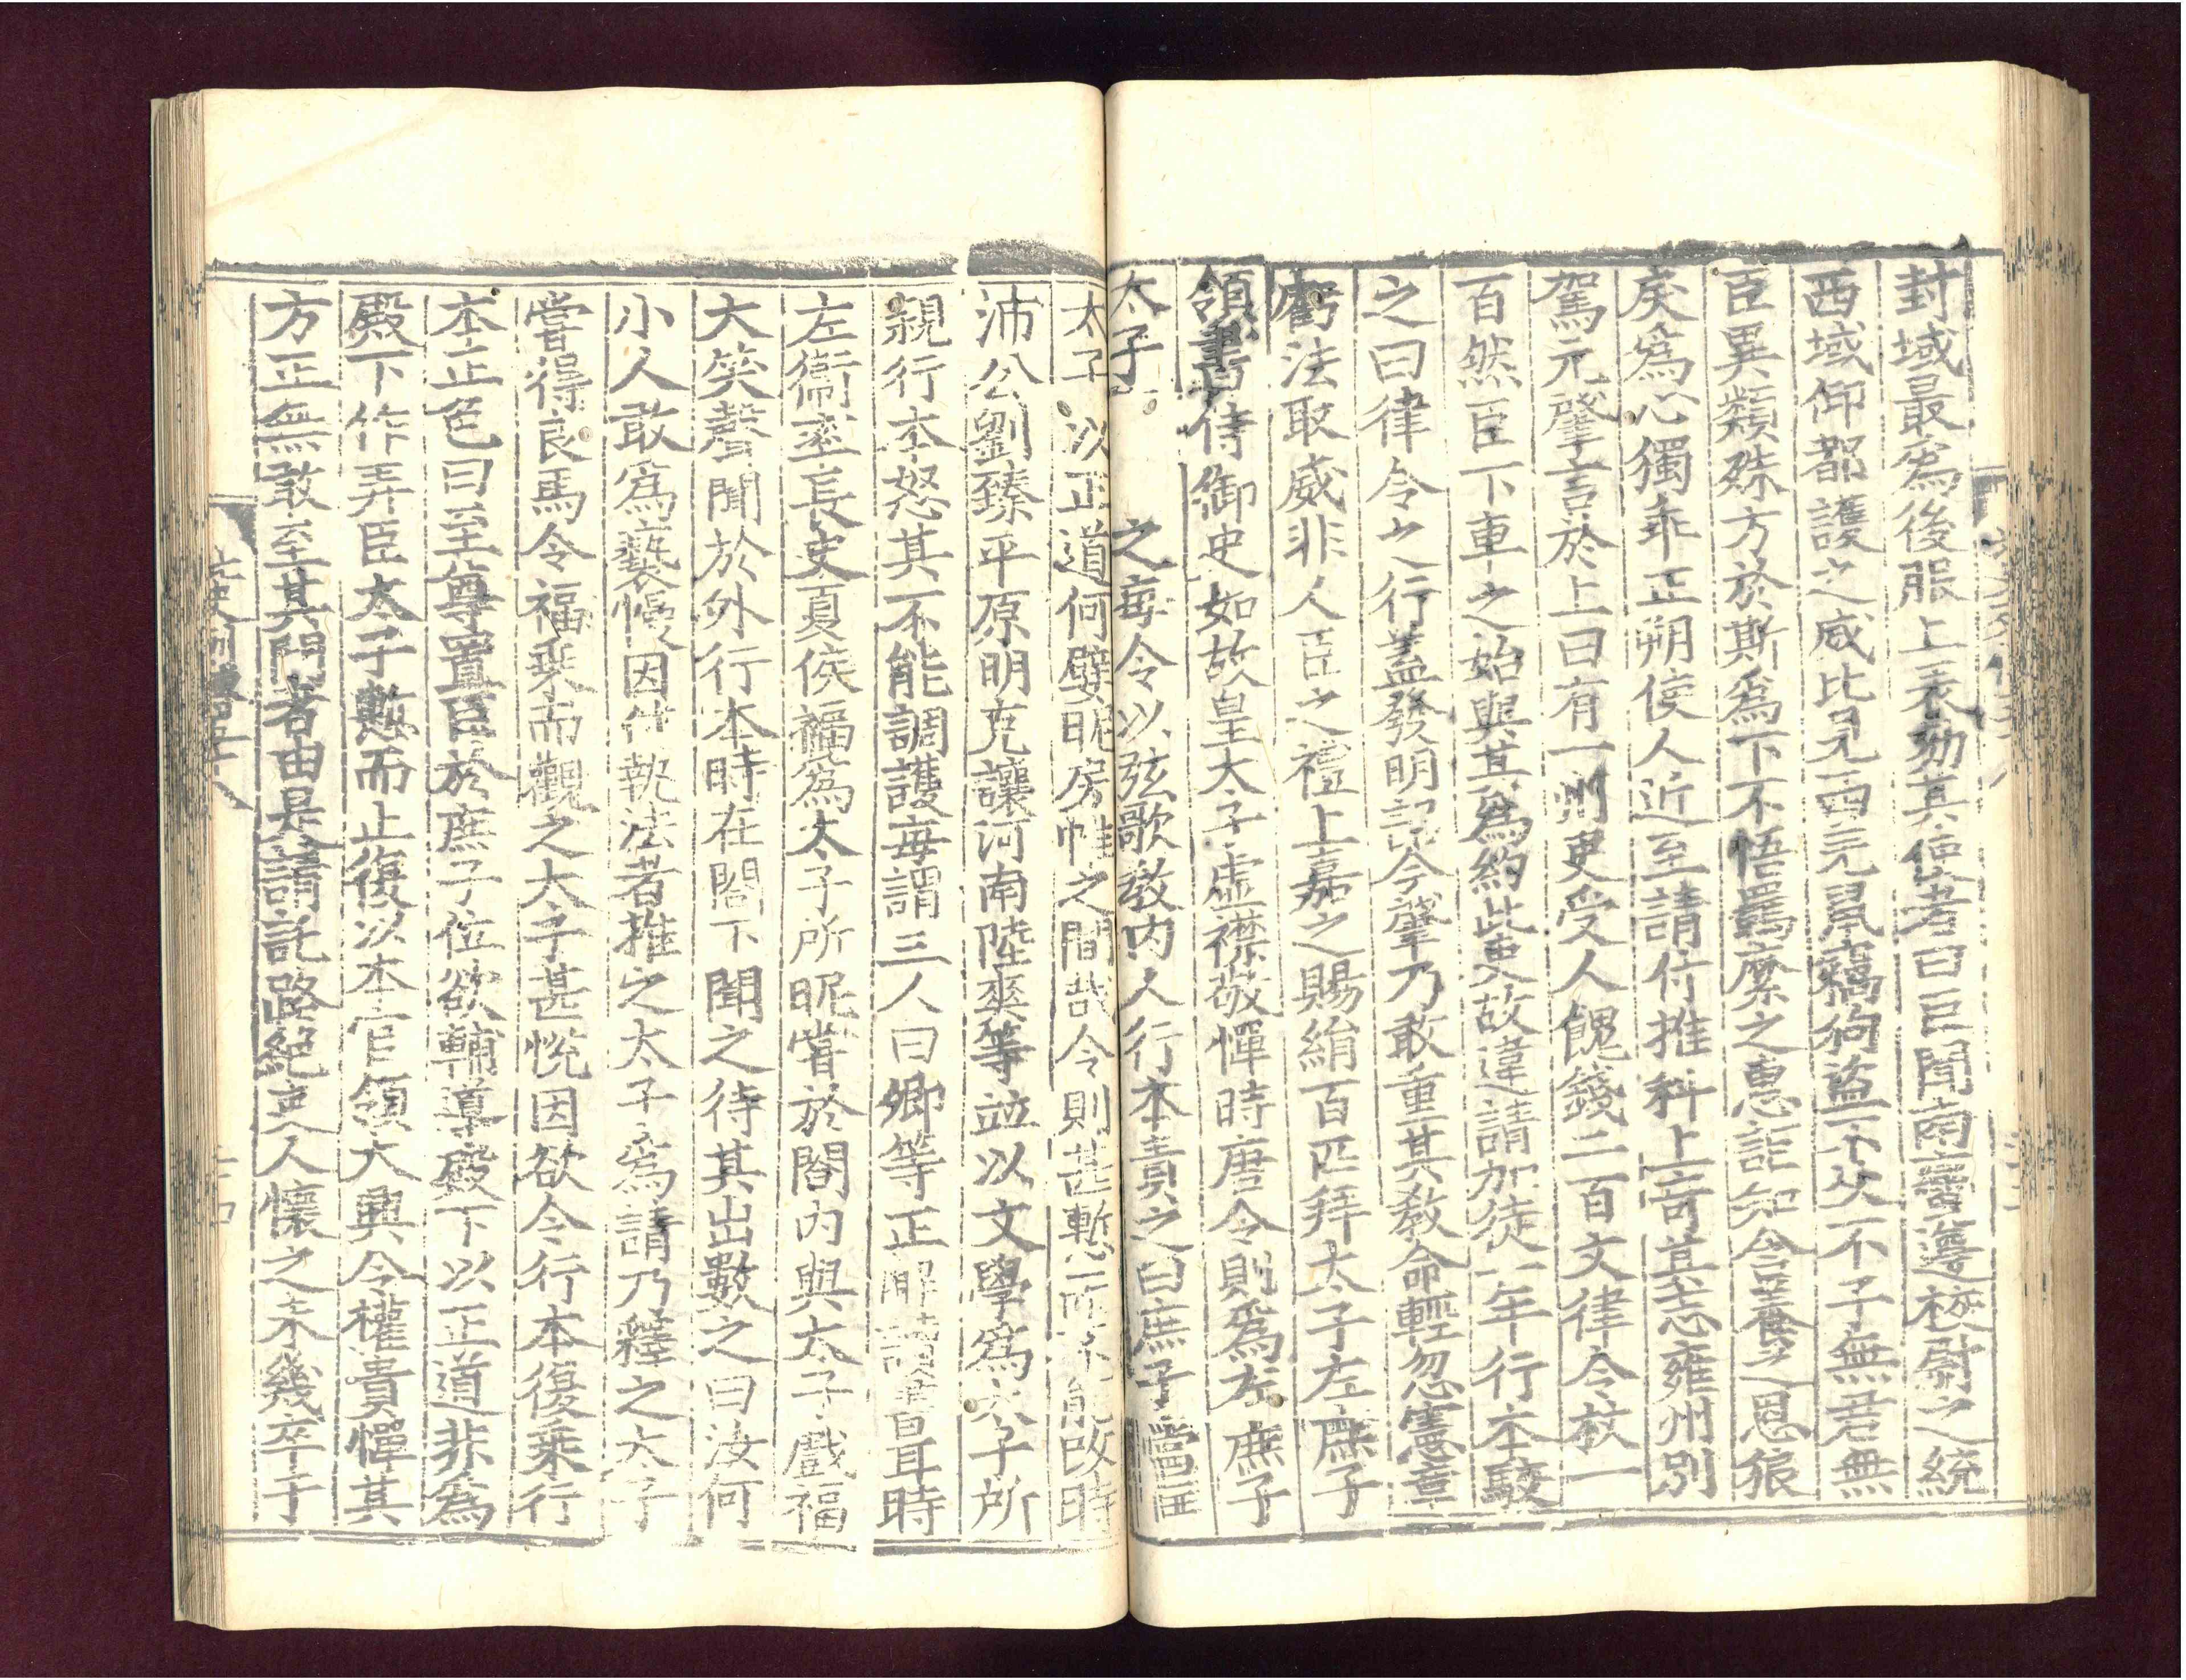 封域最爲後服上表効其使者曰臣聞南蠻遵校尉之統
西域仰都護之威比見西羌鼠竊狗盜不父不子無君無
臣異類殊方於斯爲下不悟羈縻之惠詎知含養之恩狼
戾爲心獨乖正朔使人近至請付推科上奇其志雍州別
駕元肇言於上曰有一州吏受人餽錢二百文律令杖一
百然臣下車之始與其爲約此吏故違請加徒一年行本駮
之曰律令之行蓋發明詔今肇乃敢重其教命輕忽憲章
虧法取威非人臣之禮上嘉之賜絹百匹拜太子左庶子
領書侍御史如故皇太子虛襟敬憚時唐令則爲左庶子
太子 之每令以弦歌教内人行本責之曰庶子當匡
太子以正道何嬖昵房帷之間哉令則甚慙而不能改時
沛公劉臻平原明克讓河南陸爽等並以文學爲太子所
親行本怒其不能調護每謂三人曰卿等正解讀書耳時
左衞率長史夏侯福爲太子所昵嘗於閤内與太子戲福
大笑聲聞於外行本時在閤下聞之待其出數之曰汝何
小人敢爲褻慢因付執法者推之太子爲請乃釋之太子
嘗得良馬令福乘而觀之太子甚悅因欲令行本復乘行
本正色曰至尊置臣於庶子位欲輔導殿下以正道非爲
殿下作弄臣太子慙而止復以本官領大興令權貴憚其
方正無敢至其門者由是請託路絕吏人懷之未幾卒于